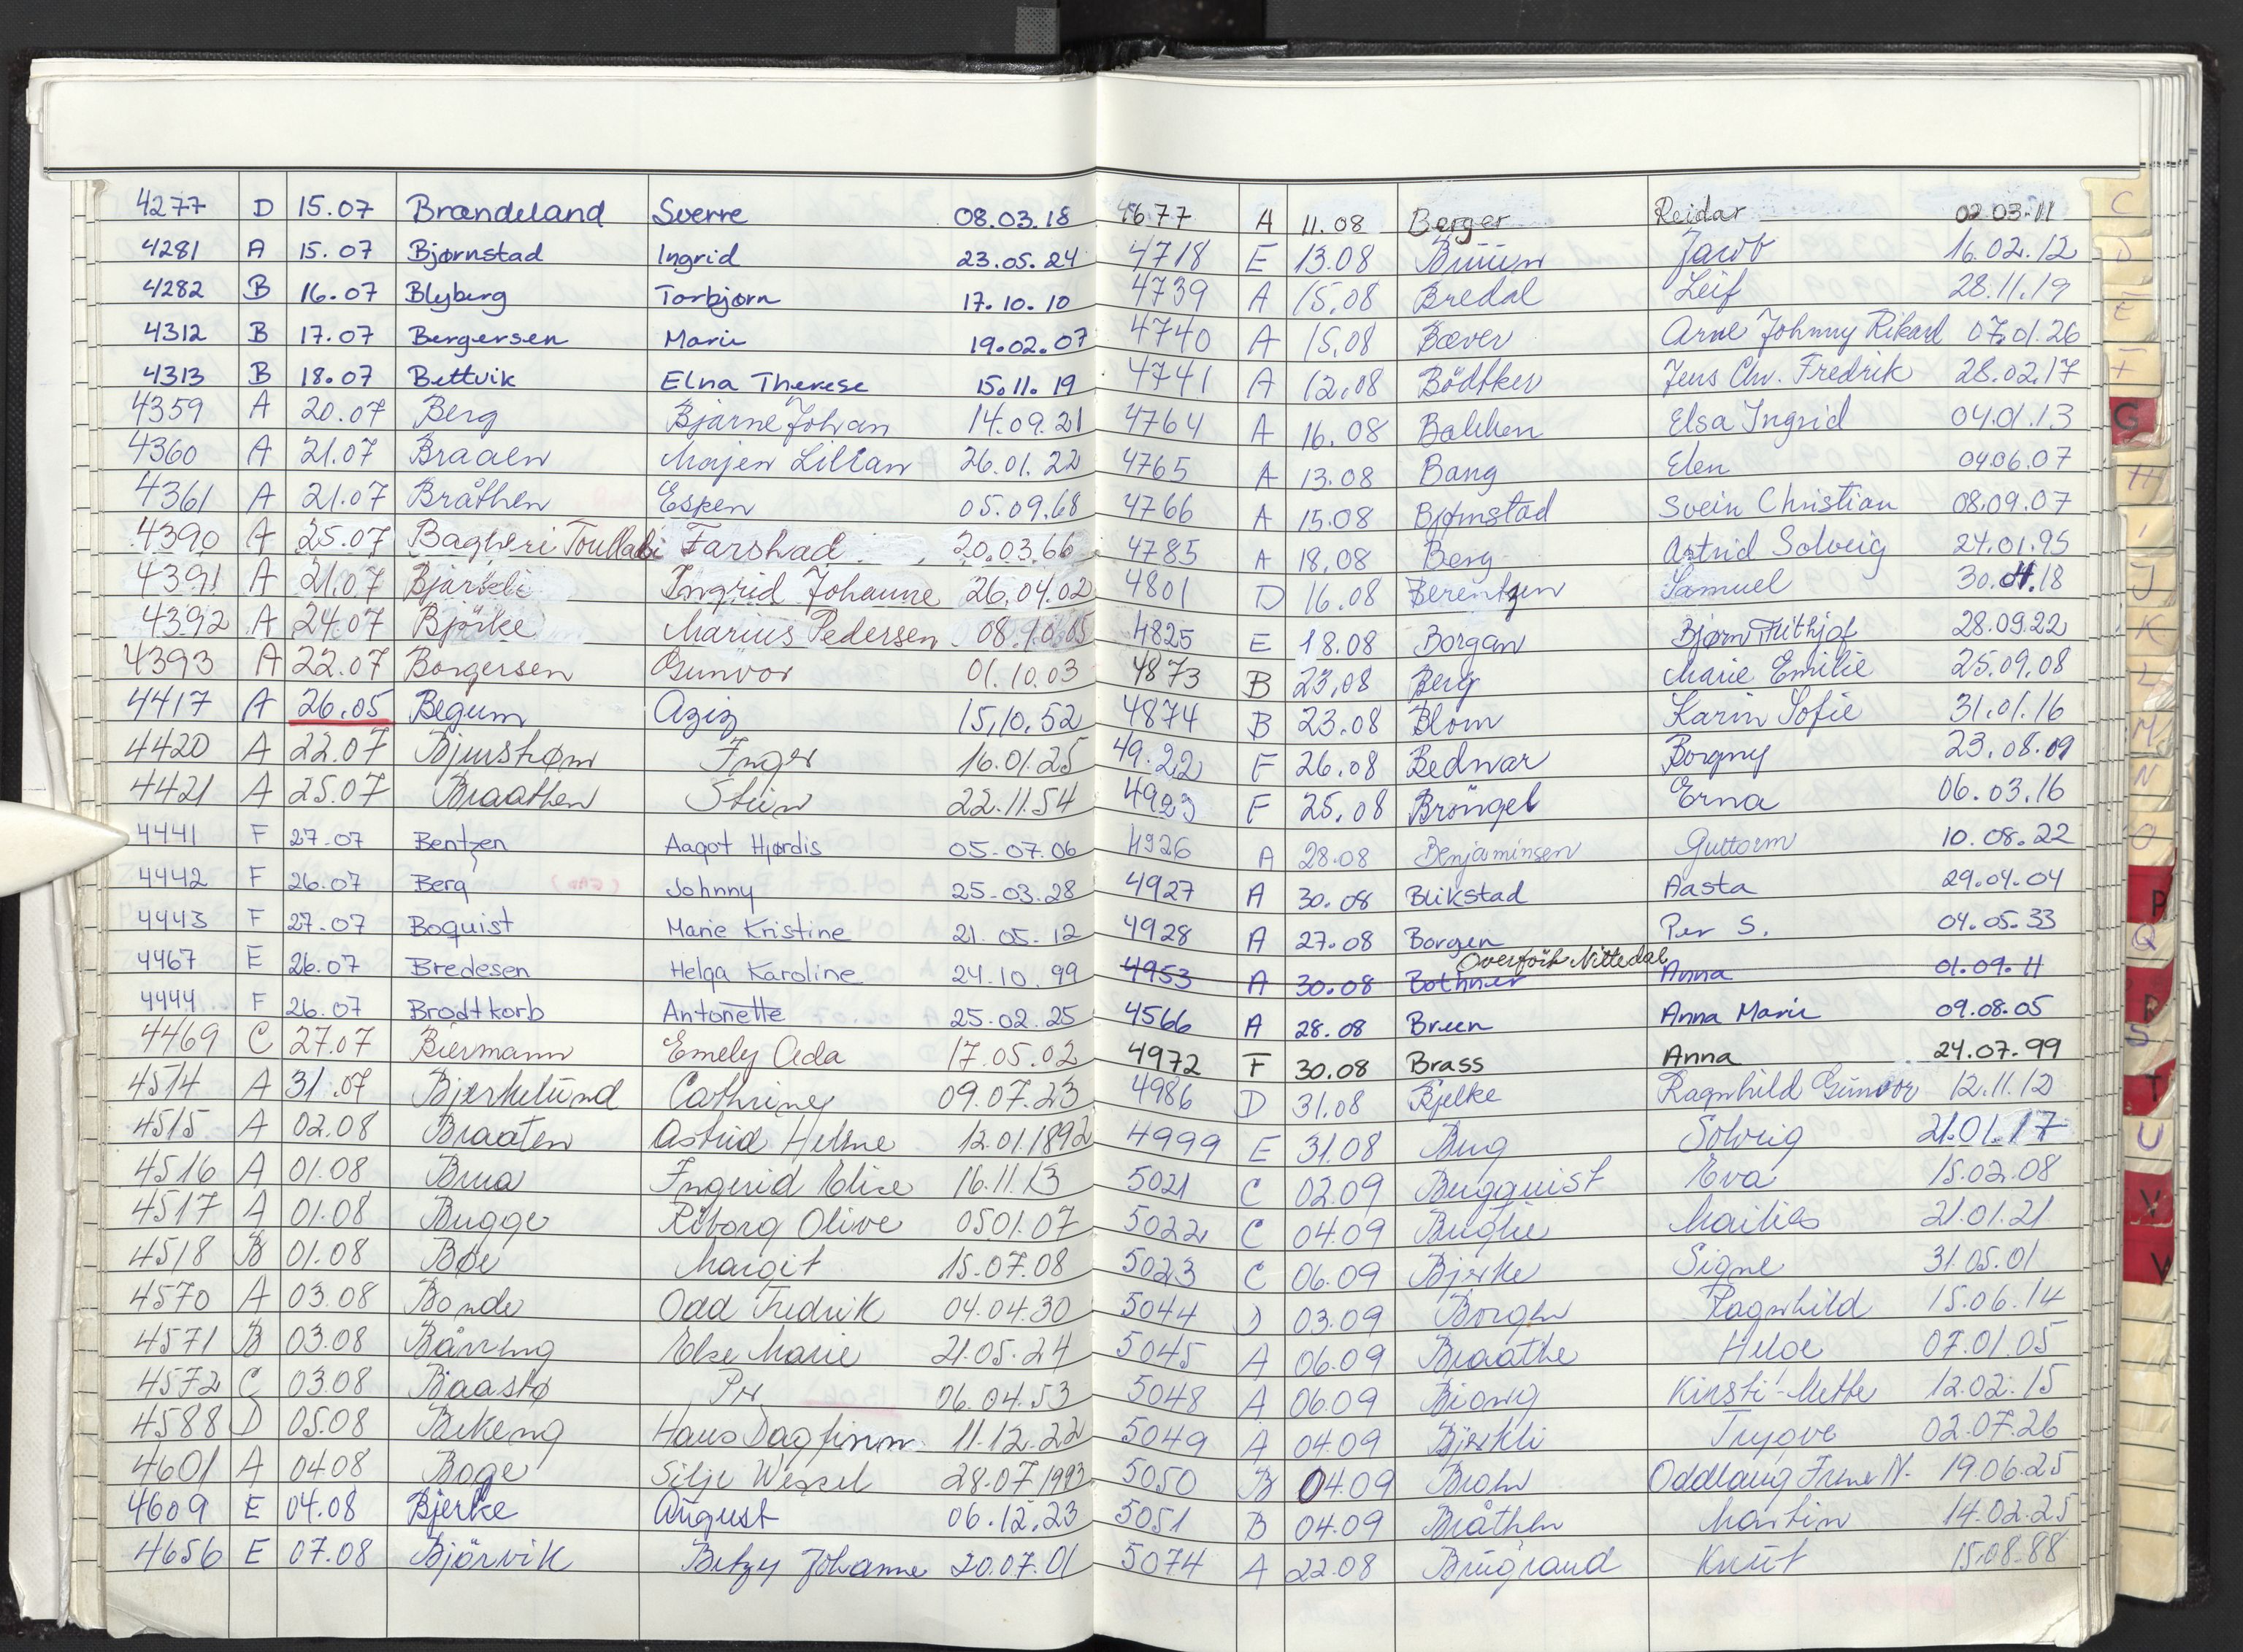 4277 D 15.07 Brændeland Sverre 08.03.18
4281 A 15.07 Bjørnstad Ingrid 23.05.24
4282 B 16.07 Blyberg Torbjørn 17.10.10
4312 B 17.07 Bergersen Marie 19.02.07
4313 B 18.07 Bettvik Elna Therese 15.11.19
4359 A 20.07 Berg Bjarne Johan 14.09.21
4360 A 21.07 Braaen Majen Lillian 26.01.22
4361 A 21.07 Bråthen Espen 05.09.68
4390 A 25.07 Bagheri Farshad 20.03.66
4391 A 21.07 Ingrid Johanne 26.04.02
4392 A 24.07 Björke Marius Pedersen 08.10.05
4393 A 22.07 Borgersen Gunvor 01.10.03
4417 A 26.05 Begum Aziz 15.10.52
4420 A 22.07 Bjurstrøm Inger 16.01.25
4421 A 25.07 Braathen Stein 22.11.54
4441 F 27.07 Bentzen Aagot Hjørdis 05.07.06
4442 F 26.07 Berg Johnny 25.03.28
4443 F 27.07 Boquist Marie Kristine 21.05.12
4467 E 26.07 Bredesen Helga Karoline 24.10.99
4444 F 26.07 Brodtkorb Antonette 25.02.25
4469 C 27.07 Biermann Emely Ada 17.05.02
4514 A 31.07 Bjerkelund Cathriney 09.07.23
4515 A 02.08 Braaten Astrid Helene 12.01.1892
4516 A 01.08 Brua Ingerid Elise 16.11.13
4517 A 01.08 Bugge Riborg Olive 05.01.07
4518 B 01.08 Bøe Margit 15.07.08
4570 A 03.08 Bonde Odd Fredrik 04.04.30
4571 B 03.08 Båsving Else Marie 21.05.24
4572 C 03.08 Baastø Per 06.04.53
4588 D 05.08 Bekeng Hans Dagfinn 11.12.22
4601 A 04.08 Boge Silje Wessel 28.07.1993
4609 E 04.08 Bjerke August 06.12.23
4656 E 07.08 Björvik Betzy Johanne 20.07.01
4677 A 11.08 Berger Reidar 02.03.11
4718 E 13.08 Bruun Jacob 16.02.12
4739 A 15.08 Bredal Leif 28.11.19
4740 A 15.08 Bæver Arne Johnny Rikard 07.01.26
4741 A 12.08 Bödtker Jens Chr. Fredrik 28.02.17
4764 A 16.08 Bakken Elsa Ingrid 04.01.13
4765 A 13.08 Bang Elen 04.06.07
4766 A 15.08 Bjørnstad Svein Christian 08.09.07
4785 A 18.08 Berg Astrid Solveig 24.01.95
4801 D 16.08 Berentzen Samuel 30.04.18
4825 E 18.08 Borgan Bjørn Frithjof 28.09.22
4873 B 23.08 Berg Marie Emilie 25.09.08
4874 B 23.08 Blom Karin Sofie 31.01.16
49.22 F 26.08 Bednar Borgny 23.08.09
4923 F 25.08 Bröngel Erna 06.03.16
4926 A 28.08 Benjaminsen Guttorm 10.08.22
4927 A 30.08 Blikstad Aasta 29.04.04
4928 A 27.08 Borgen Per S. 04.05.33
Overført Nittedal
4953 A 30.08 Bothner Anna 01.09.11
4566 A 28.08 Breen Anna Marie 09.08.05
4972 F 30.08 Brass Anna 24.07.99
4986 D 31.08 Bjelke Ragnhild Gunvor 12.11.12
4999 E 31.08 Berg Solveig 21.01.17
5021 C 02.09 Bergquist Eva 15.02.08
5022 C 04.09 Mailis 21.01.21
5023 C 06.09 Bjerke Signe 31.05.01
5044 D 03.09 Borgen Ragnhild 15.06.14
5045 A 06.09 Braathe Helge 07.01.05
5048 A 06.09 Biong Kirsti-Mette 12.02.15
5049 A 04.09 Bjerkli Trygve 02.07.26
5050 B 04.09 Brohn Oddlaug Irene N. 19.06.25
5051 B 04.09 Bråthen Martin 14.02.25
5074 A 22.08 Knut 15.08.88
C
D
E
F
G
H
I
J
K
L
M
N
O
P
Q
R
S
T
U
V
W